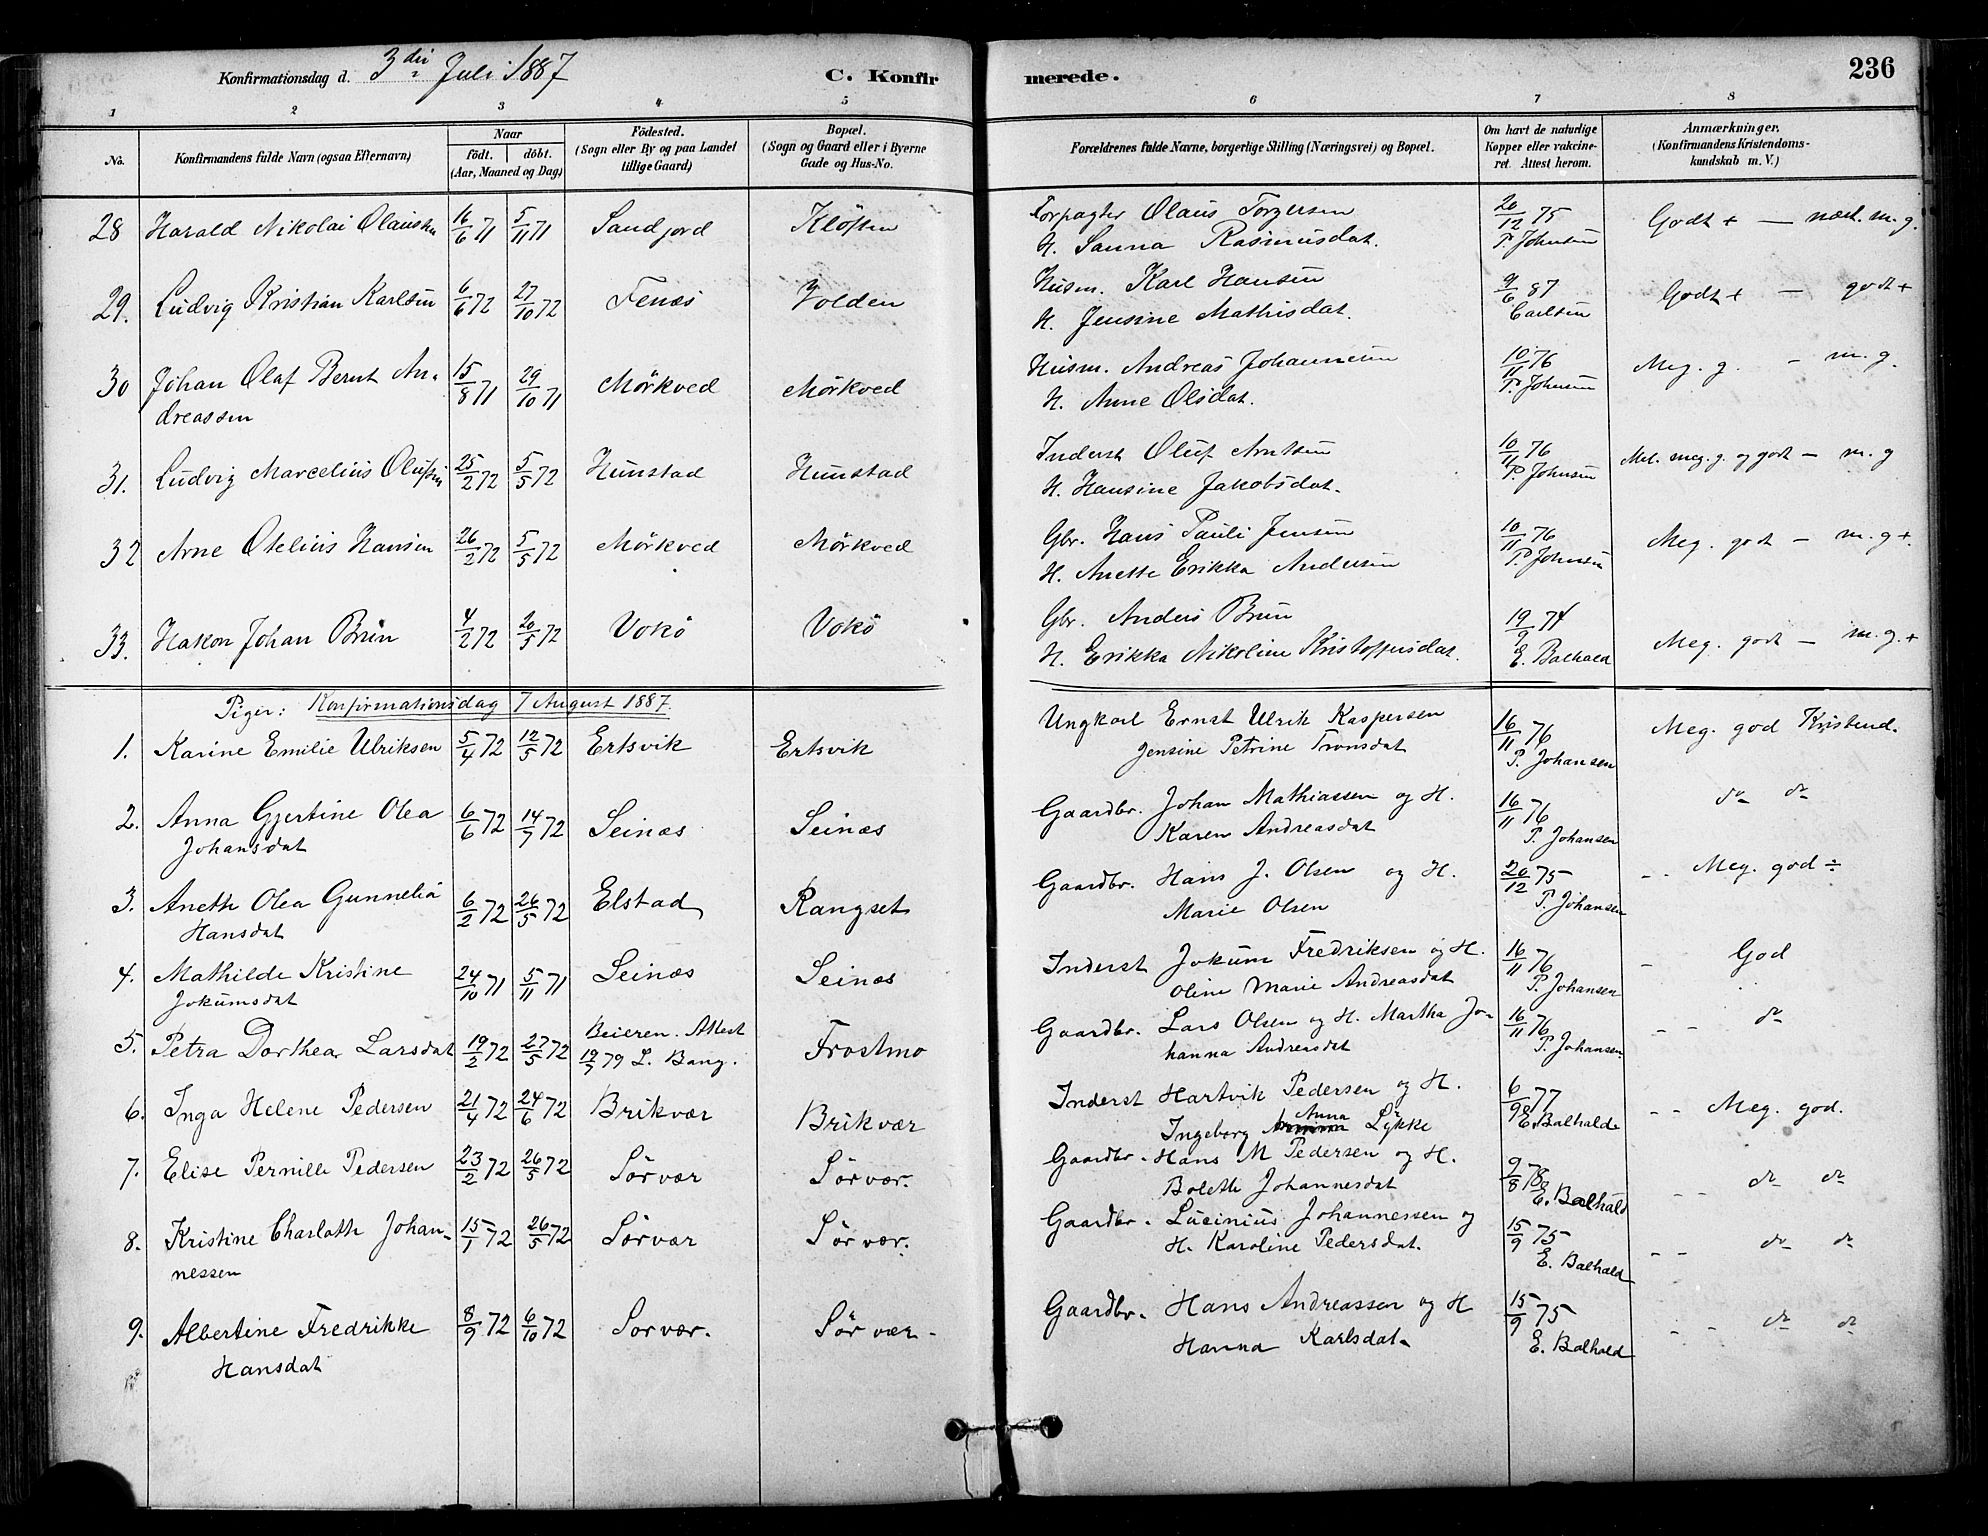 Konfirmationsdag d. 3die Juli 1887 C. Konfirmerede. 236
1 2 3 4 5 6 7 8
No. Konfirmandens fulde Navn (ogsaa Efternavn) Naar født. døbt. (Aar, Maaned og Dag) Fødested. (Sogn eller By og paa Landet tillige Gaard) Bopæl. (Sogn og Gaard eller i Byerne Gade og Hus-No. Forældrenes fulde Navne, borgerlige Stilling (Næringsvei) og Bopæl. Om havt de naturlige Kopper eller vakcineret. Attest herom. Anmærkninger. (Konfirmandens Kristendomskundskab m. V.)
28 Harald Nikolai Olaussen 16/6 71 5/11 71 Sandjord Kløften Forpagter Olaus Torgersen 26/12 75 Godt + — næst. m. g.
H. Sanna Rasmusdat. P. Johnsen
29. Ludvig Kristian Karlsen 6/6 72 27/10 72 Fenæs Volden Husm. Karl Hansen 9/6 87 Godt + — godt +
H. Jensine Mathisdat. Carlsen
30 Johan Olaf Bernt An- 15/8 71 29/10 71 Mörkved Mörkved Husm. Andreas Johannesen 10/11 76 Meg. g. — m. g.
dreassen H. Anne Olsdat. P. Johnsen
31. Ludvig Marcelius Olufsen 25/2 72 5/5 72 Hunstad Hunstad Inderst Oluf Arntsen 10/11 76 Mel. meg. g. og godt — m. g
H. Hansine Jakobsdat. P. Johnsen
32 Arne Otelius Hansen 26/2 72 5/5 72 Mörkved Mörkved Gbr. Hans Pauli Jensen 10/11 76 Meg. godt — m. g +.
H. Anette Erikka Andersen P. Johnsen
33. Hakon Johan Brun 4/2 72 26/5 72 Vokö Vokö Gbr. Anders Brun 19/9 74 Meg. godt — m. g. +
H. Erikka Nikoline Kristoffersdat. E. Balhald
Piger: Konfirmationsdag 7 August 1887.
1. Karine Emilie Ulriksen 5/4 72 12/5 72 Ertsvik Ertsvik Ungkarl Ernst Ulrik Kaspersen 16/11 76 Meg. god Kristend.
Jensine Petrine Tronsdat P. Johansen
2. Anna Gjertine Olea 6/6 72 14/7 72 Seinæs Seinæs Gaardbr. Johan Mathiassen og H. 16/11 76 do do
Johansdat Karen Andreasdat P. Johansen
3. Aneth Olea Gunnelia 6/2 72 26/5 72 Elstad Rangset Gaardbr. Hans J. Olsen og H. 26/12 75 - - Meg. god ÷
Hansdat Marie Olsen P. Johansen
4. Mathilde Kristine 24/10 71 5/11 71 Seinæs Seinæs Inderst Jokum Fredriksen og H. 16/11 76 - God
Jokumsdat Oline Marie Andreasdat P. Johansen
5. Petra Dorthea Larsdat 19/2 72 27/5 72 Beieren. Attest Frostmo Gaardbr. Lars Olsen og H. Martha Jo- 16/11 76 - - do
19/7 79 L. Bang. hanna Andreasdat P. Johansen
6. Inga Helene Pedersen 21/4 72 24/6 72 Brikvær Brikvær Inderst Hartvik Pedersen og H. 6/9 77 - - Meg. god.
Ingeborg Anna Lykke E. Balhald
7. Elise Pernille Pedersen 23/2 72 26/5 72 Sörvær Sörvær. Gaardbr. Hans M Pedersen og H. 9/8 78 - - do do
Boleth Johannesdat E. Balhald
8. Kristine Charloth Johan- 15/1 72 26/5 72 Sörvær Sörvær. Gaardbr. Lucinius Johannessen og 15/9 75 - - do do
nessen H. Karoline Pedersdat. E. Balhald
9. Albertine Fredrikke 8/9 72 6/10 72 Sörvær. Sörvær - Gaardbr. Hans Andreassen og H 15/9 75 - - do do
Hansdat Hanna Karlsdat E. Balhald